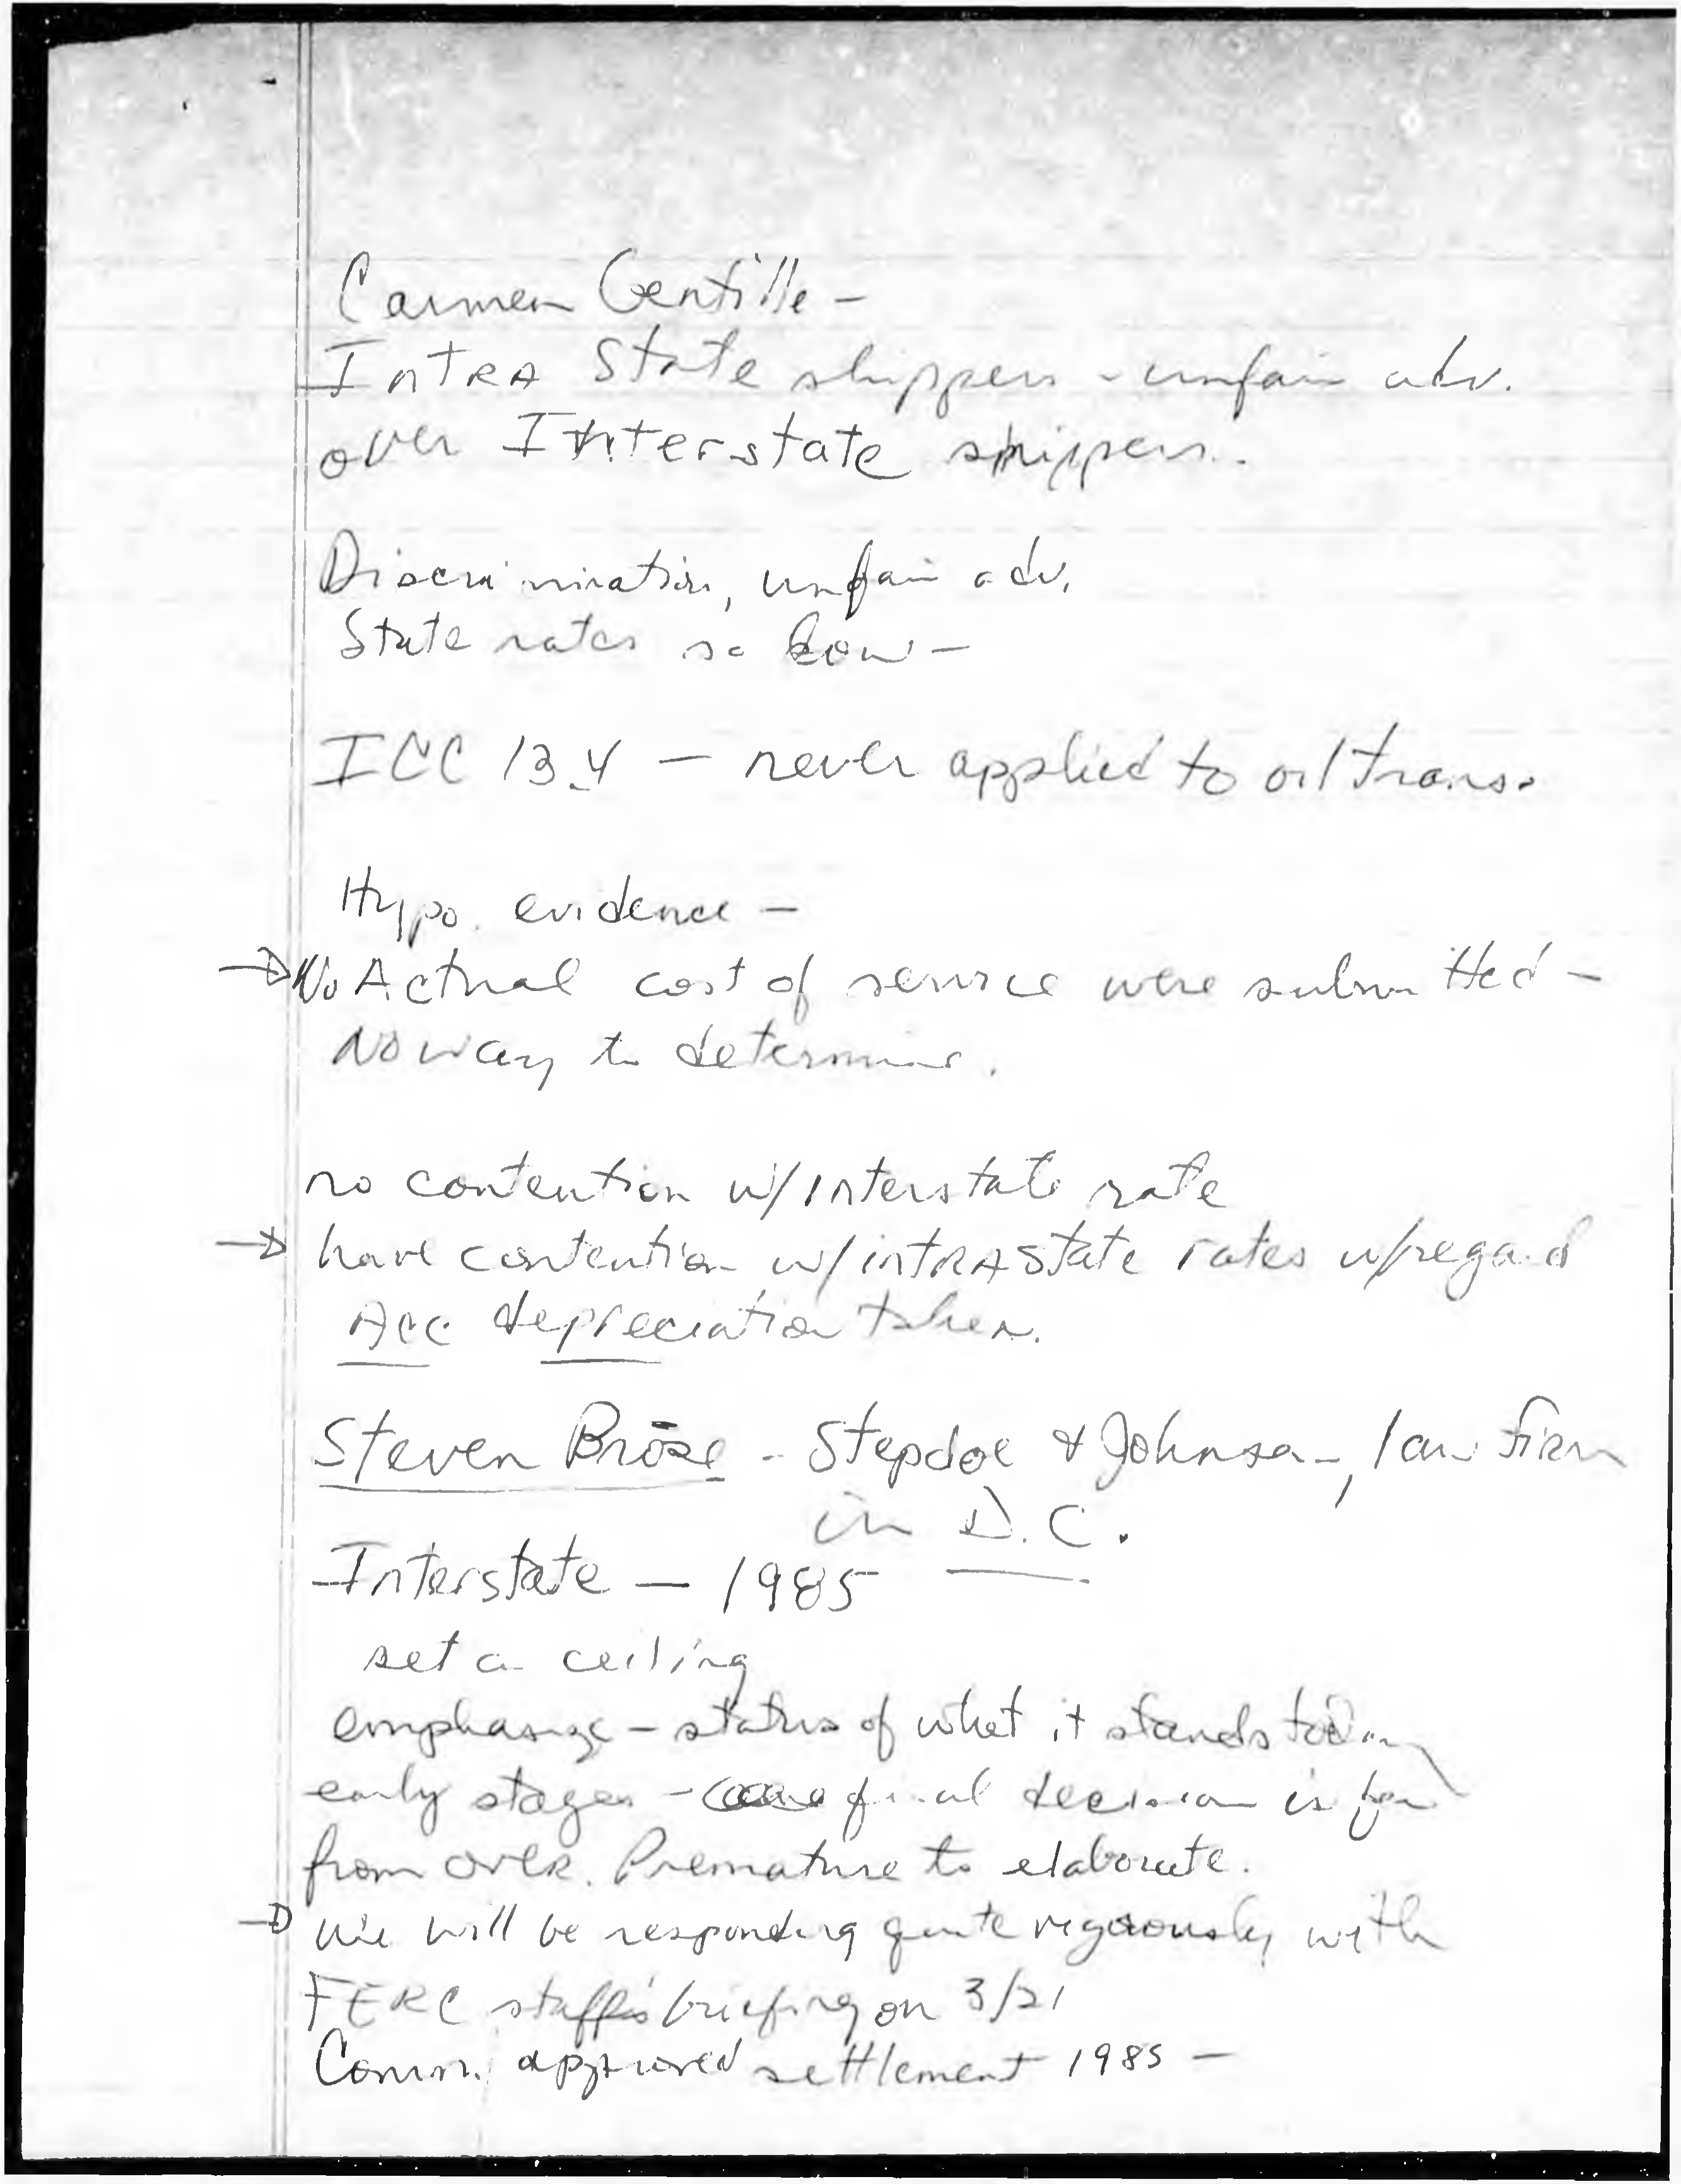 Carmen Gentille -
INTRA State shippers - unfair adv.
over Interstate shippers.
Discrimination, unfair adv.
State rates so low -
ICC 13.4 - never applied to oil trans.
Hypo. evidence -
→ No Actual cost of service were submitted -
NO way to determine.
no contention w/Interstate rate
→ have contention w/intRAState rates w/regard
Acc depreciation taken.
Steven Brose - Stepdoe & Johnson, law firm
in D.C.
Interstate - 1985
set a ceiling
emphasize - status of what it stands today
early stages - final decision is far
from over. Premature to elaborate.
→ We will be responding quite vigorously with
FERC staff's briefing on 3/21
Comm. approved settlement 1985 -